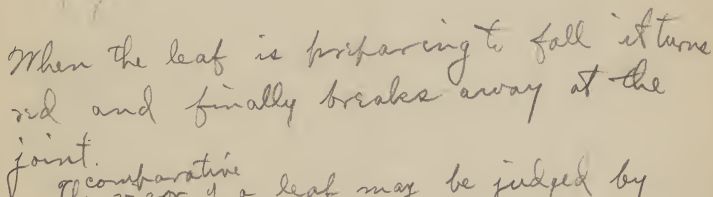 When the leaf is preparing to fall it turns
red and finally breaks away at the
joint.
comparative
The of a leaf may be judged by